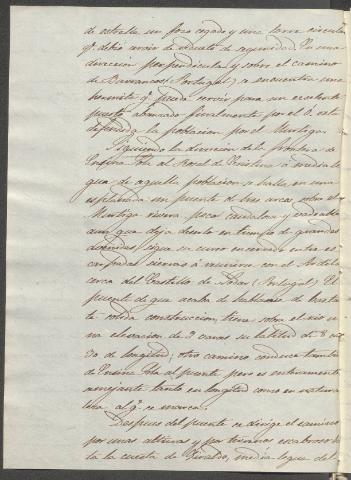 de estrella un foso cegado y una torre circular
qº debio servir de reducto de seguridad. En una
direccion perpendicular y sobre el camino
de Barrancos (Portugal) se encuentra una
hermita qº puede servir para un excelente
puesto abanzado finalmente por el O. esta
defendida la poblacion por el Murtiga.
Siguiendo la direccion de la frontera de
Encina Sola al Rosal de Cristina a media le
gua de aquella poblacion se halla en una
esplanada un puente de tres arcos sobre el
Murtiga rivera poco caudalosa y vadeable
aun que deja de serlo en tiempo de grandes
avenidas; sigue su curso encerrada entre es
carpadas sierras á reunirse con el Ardila
cerca del Castillo de Nodar (Portugal). El
puente de que acaba de hablarse de bastan
te solida construccion, tiene sobre el rio
una elevacion de 9 varas su latitud de 8 y
30 de longitud; otro camino conduce tambn
de Encina Sola al puente pero es enteramente
semejante tanto en longitud como en natura
leza al qº se marca.
Despues del puente se dirige el camino
por unas alturas y por terrenos escabrosos has
ta la cuesta de Giraldo, media legua del